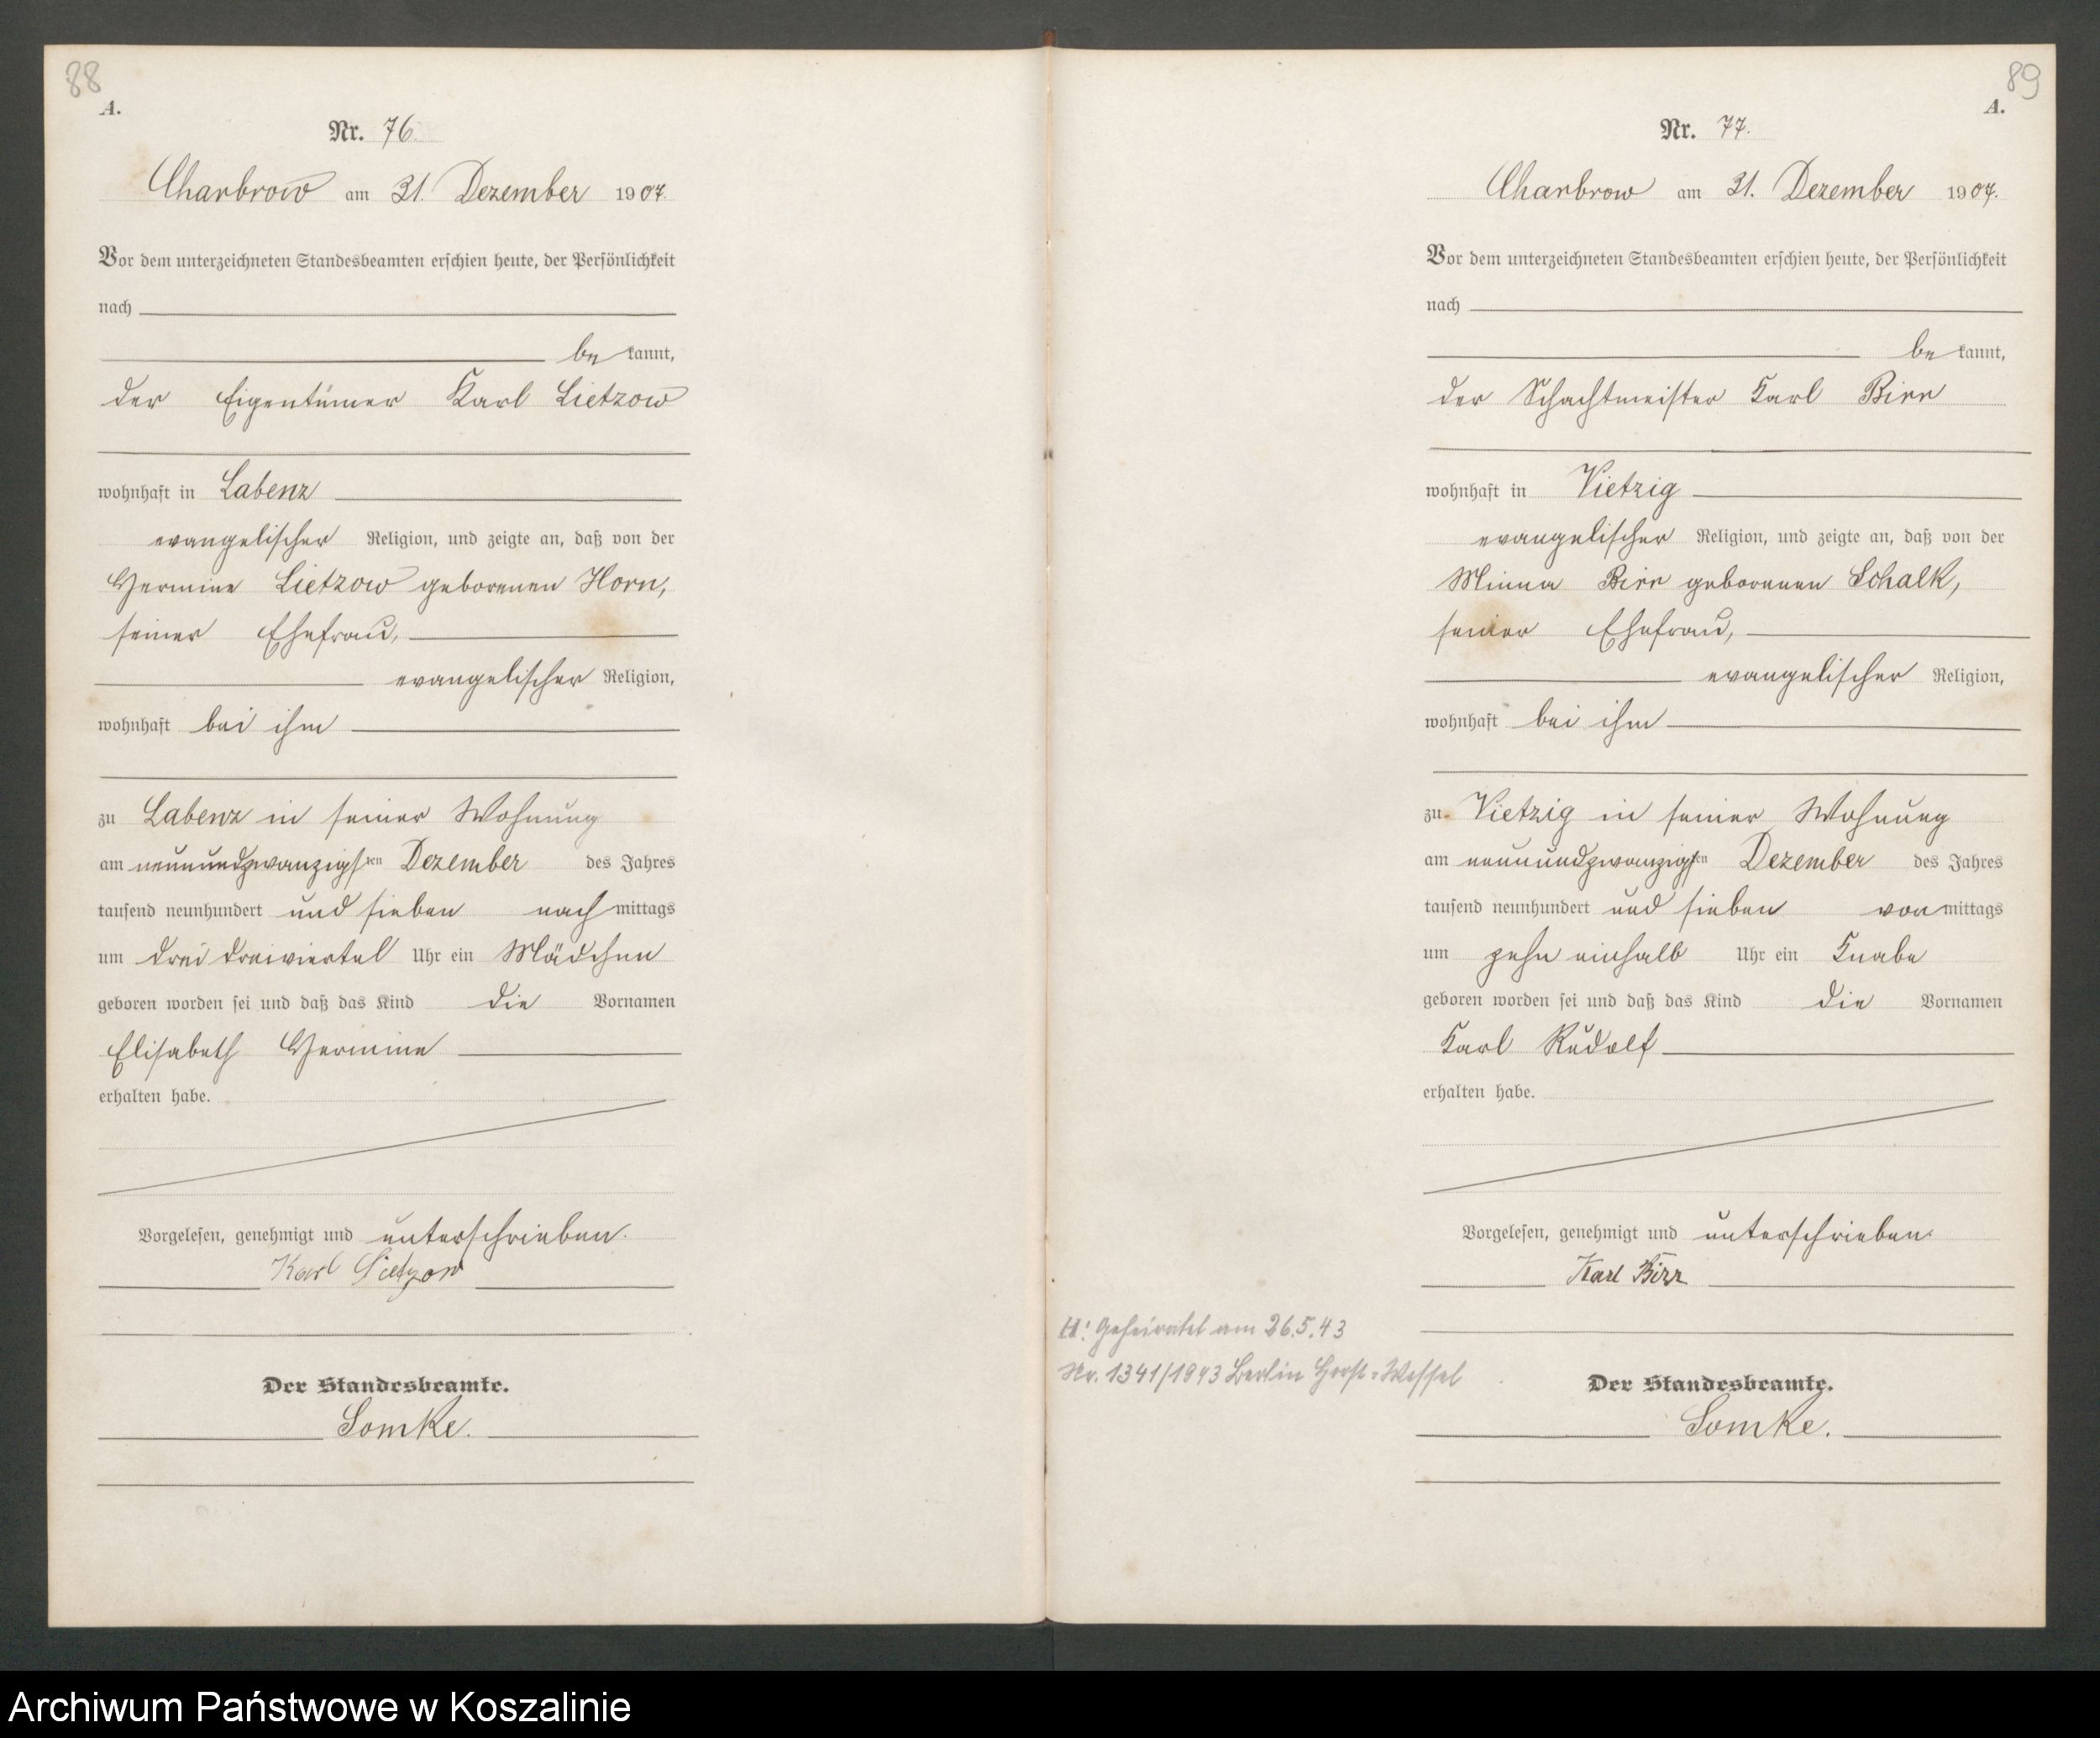 88
A.
Nr. 76.
Charbrow am 31. Dezember 1907.
Vor dem unterzeichneten Standesbeamten erschien heute, der Persönlichkeit
nach
be kannt,
der Eigentümer Karl Lietzow
wohnhaft in Labenz
evangelischer Religion, und zeigte an, daß von der
Hermine Lietzow geborenen Horn,
seiner Ehefrau,
evangelischer Religion,
wohnhaft bei ihm
zu Labenz in seiner Wohnung
am neunundzwanzigsten Dezember des Jahres
tausend neunhundert und sieben nach mittags
um drei dreiviertel Uhr ein Mädchen
geboren worden sei und daß das Kind die Vornamen
Elisabeth Hermine
erhalten habe.
Vorgelesen, genehmigt und unterschrieben.
Karl Lietzow
Der Standesbeamte.
Somke.
89
A.
Nr. 77.
Charbrow am 31. Dezember 1907.
Vor dem unterzeichneten Standesbeamten erschien heute, der Persönlichkeit
nach
be kannt,
der Schachtmeister Karl Birr
wohnhaft in Vietzig
evangelischer Religion, und zeigte an, daß von der
Minna Birr geborenen Schalk,
seiner Ehefrau,
evangelischer Religion,
wohnhaft bei ihm
zu Vietzig in seiner Wohnung
am neunundzwanzigsten Dezember des Jahres
tausend neunhundert und sieben vor mittags
um zehn einhalb Uhr ein Knabe
geboren worden sei und daß das Kind die Vornamen
Karl Rudolf
erhalten habe.
Vorgelesen, genehmigt und unterschrieben.
Karl Birr
H! Geheiratet am 26.5.43
Nr. 1341/1943 Berlin Horst-Wessel
Der Standesbeamte.
Somke.
Archiwum Państwowe w Koszalinie